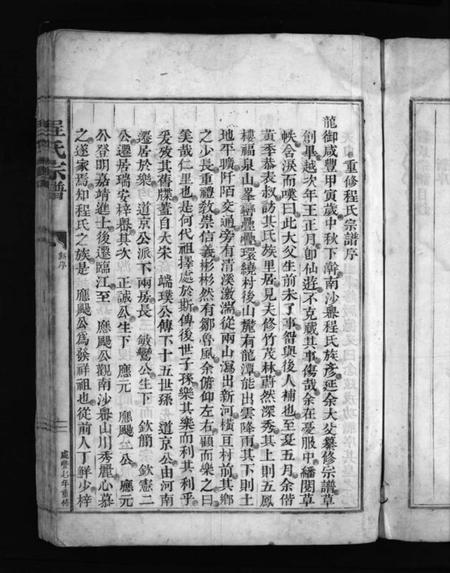 重修程氏宗譜序
龍御咸豐甲寅歲中秋下澣南沙舉程氏族彥延余大父纂修宗譜草
創畢越次年王正月卽仙遊不克蕆其事傷哉余在憂服中繙閱草
帙含淚而嘆曰此大父生前未了事智與後人補也至夏五月余偕
黃季恭表叔訪其氏族里居見夫修竹茂林蔚然深秀其上則五鳳
樓福泉山峯嶂疊疊環繞村後山麓有龍潭能出雲降雨其下則土
地平曠阡陌交通旁有清溪激湍從兩山瀉出新河橫亘村前其鄉
之少長重禮敎崇信義彬彬然有鄒魯風余俯仰左右顧而樂之曰
美哉仁里也是何代祖擇處於斯傳後世子孫樂其樂而利其利乎
爰考其舊牒蓋自大宋 端璞公傳下十五世孫 道京公由河南
遷居於樂 道京公派下兩房長 敏鸞公生下而 欽簡 欽憲二
公遷居瑞安梓嶴其次 正誠公生下 應元 應颺二公 應元
公登明嘉靖進士後遷臨江至 應颺公觀南沙嶴山川秀麗心慕
之遂家焉知程氏之族是 應颺公爲發祥祖也從前人丁鮮少梓
程氏宗譜
序
咸豐七年重修